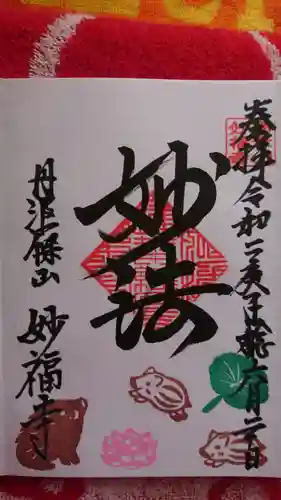 奉拝 令和二庚子歳六月二十日
妙法
丹波篠山 妙福寺